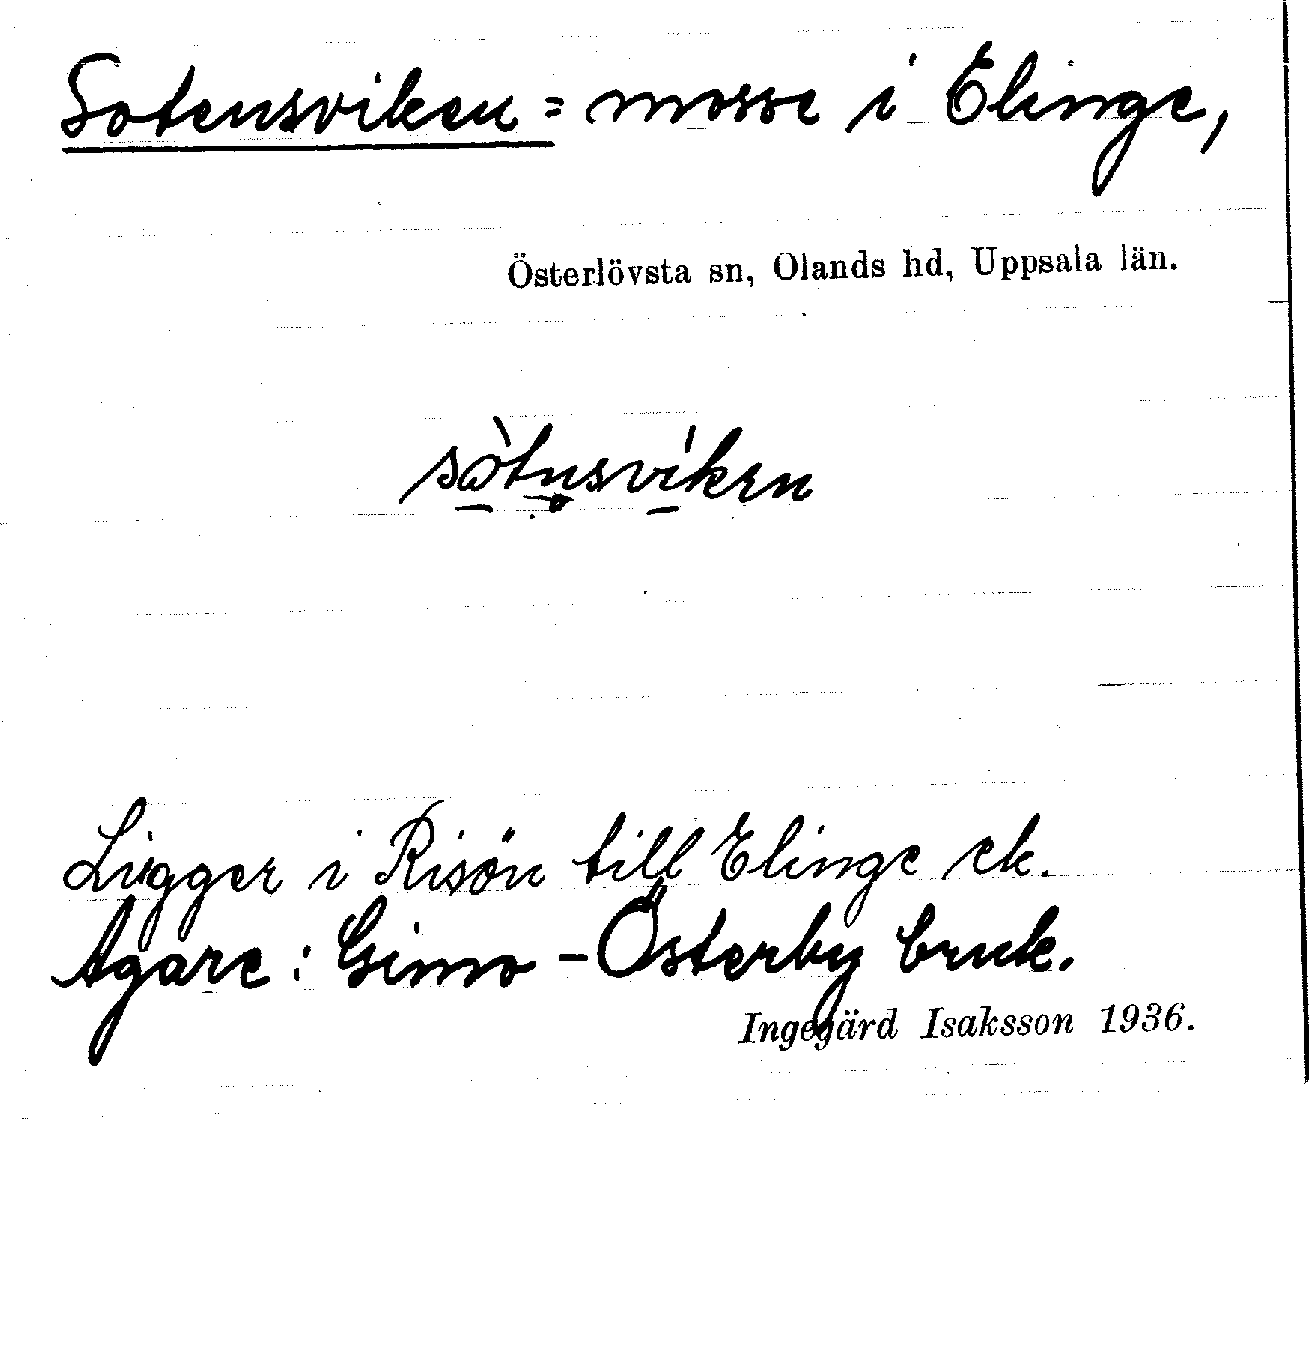 Sotensviken = mosse i Elinge,
Österlövsta sn, Olands hd, Uppsala län.
sòtnsvíken
Ligger i Risön till Elinge ek.
Ägare: Gimo-Österby bruk.
Ingegärd Isaksson 1936.